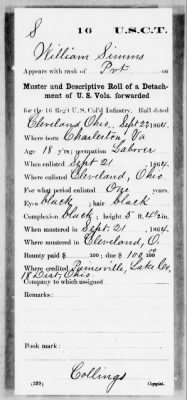 S 16 U.S.C.T.
William Simms
Appears with rank of Pvt. on
Muster and Descriptive Roll of a Detach-
ment of U. S. Vols. forwarded
for the 16 Reg't U. S. Col'd Infantry. Roll dated
Cleveland Ohio, Sept 23, 1864.
Where born Charleston, Va
Age 18 y'rs; occupation Laborer
When enlisted Sept 21, 1864.
Where enlisted Cleveland, Ohio.
For what period enlisted One years.
Eyes black; hair black
Complexion black; height 5 ft. 4½ in.
When mustered in Sept. 21, 1864.
Where mustered in Cleveland, O.
Bounty paid $ 100; due $ 100.00
Where credited Painesville, Lake Co,
18 Dist, Ohio
Company to which assigned
Remarks:
Book mark:
Collings
(339) Copyist.